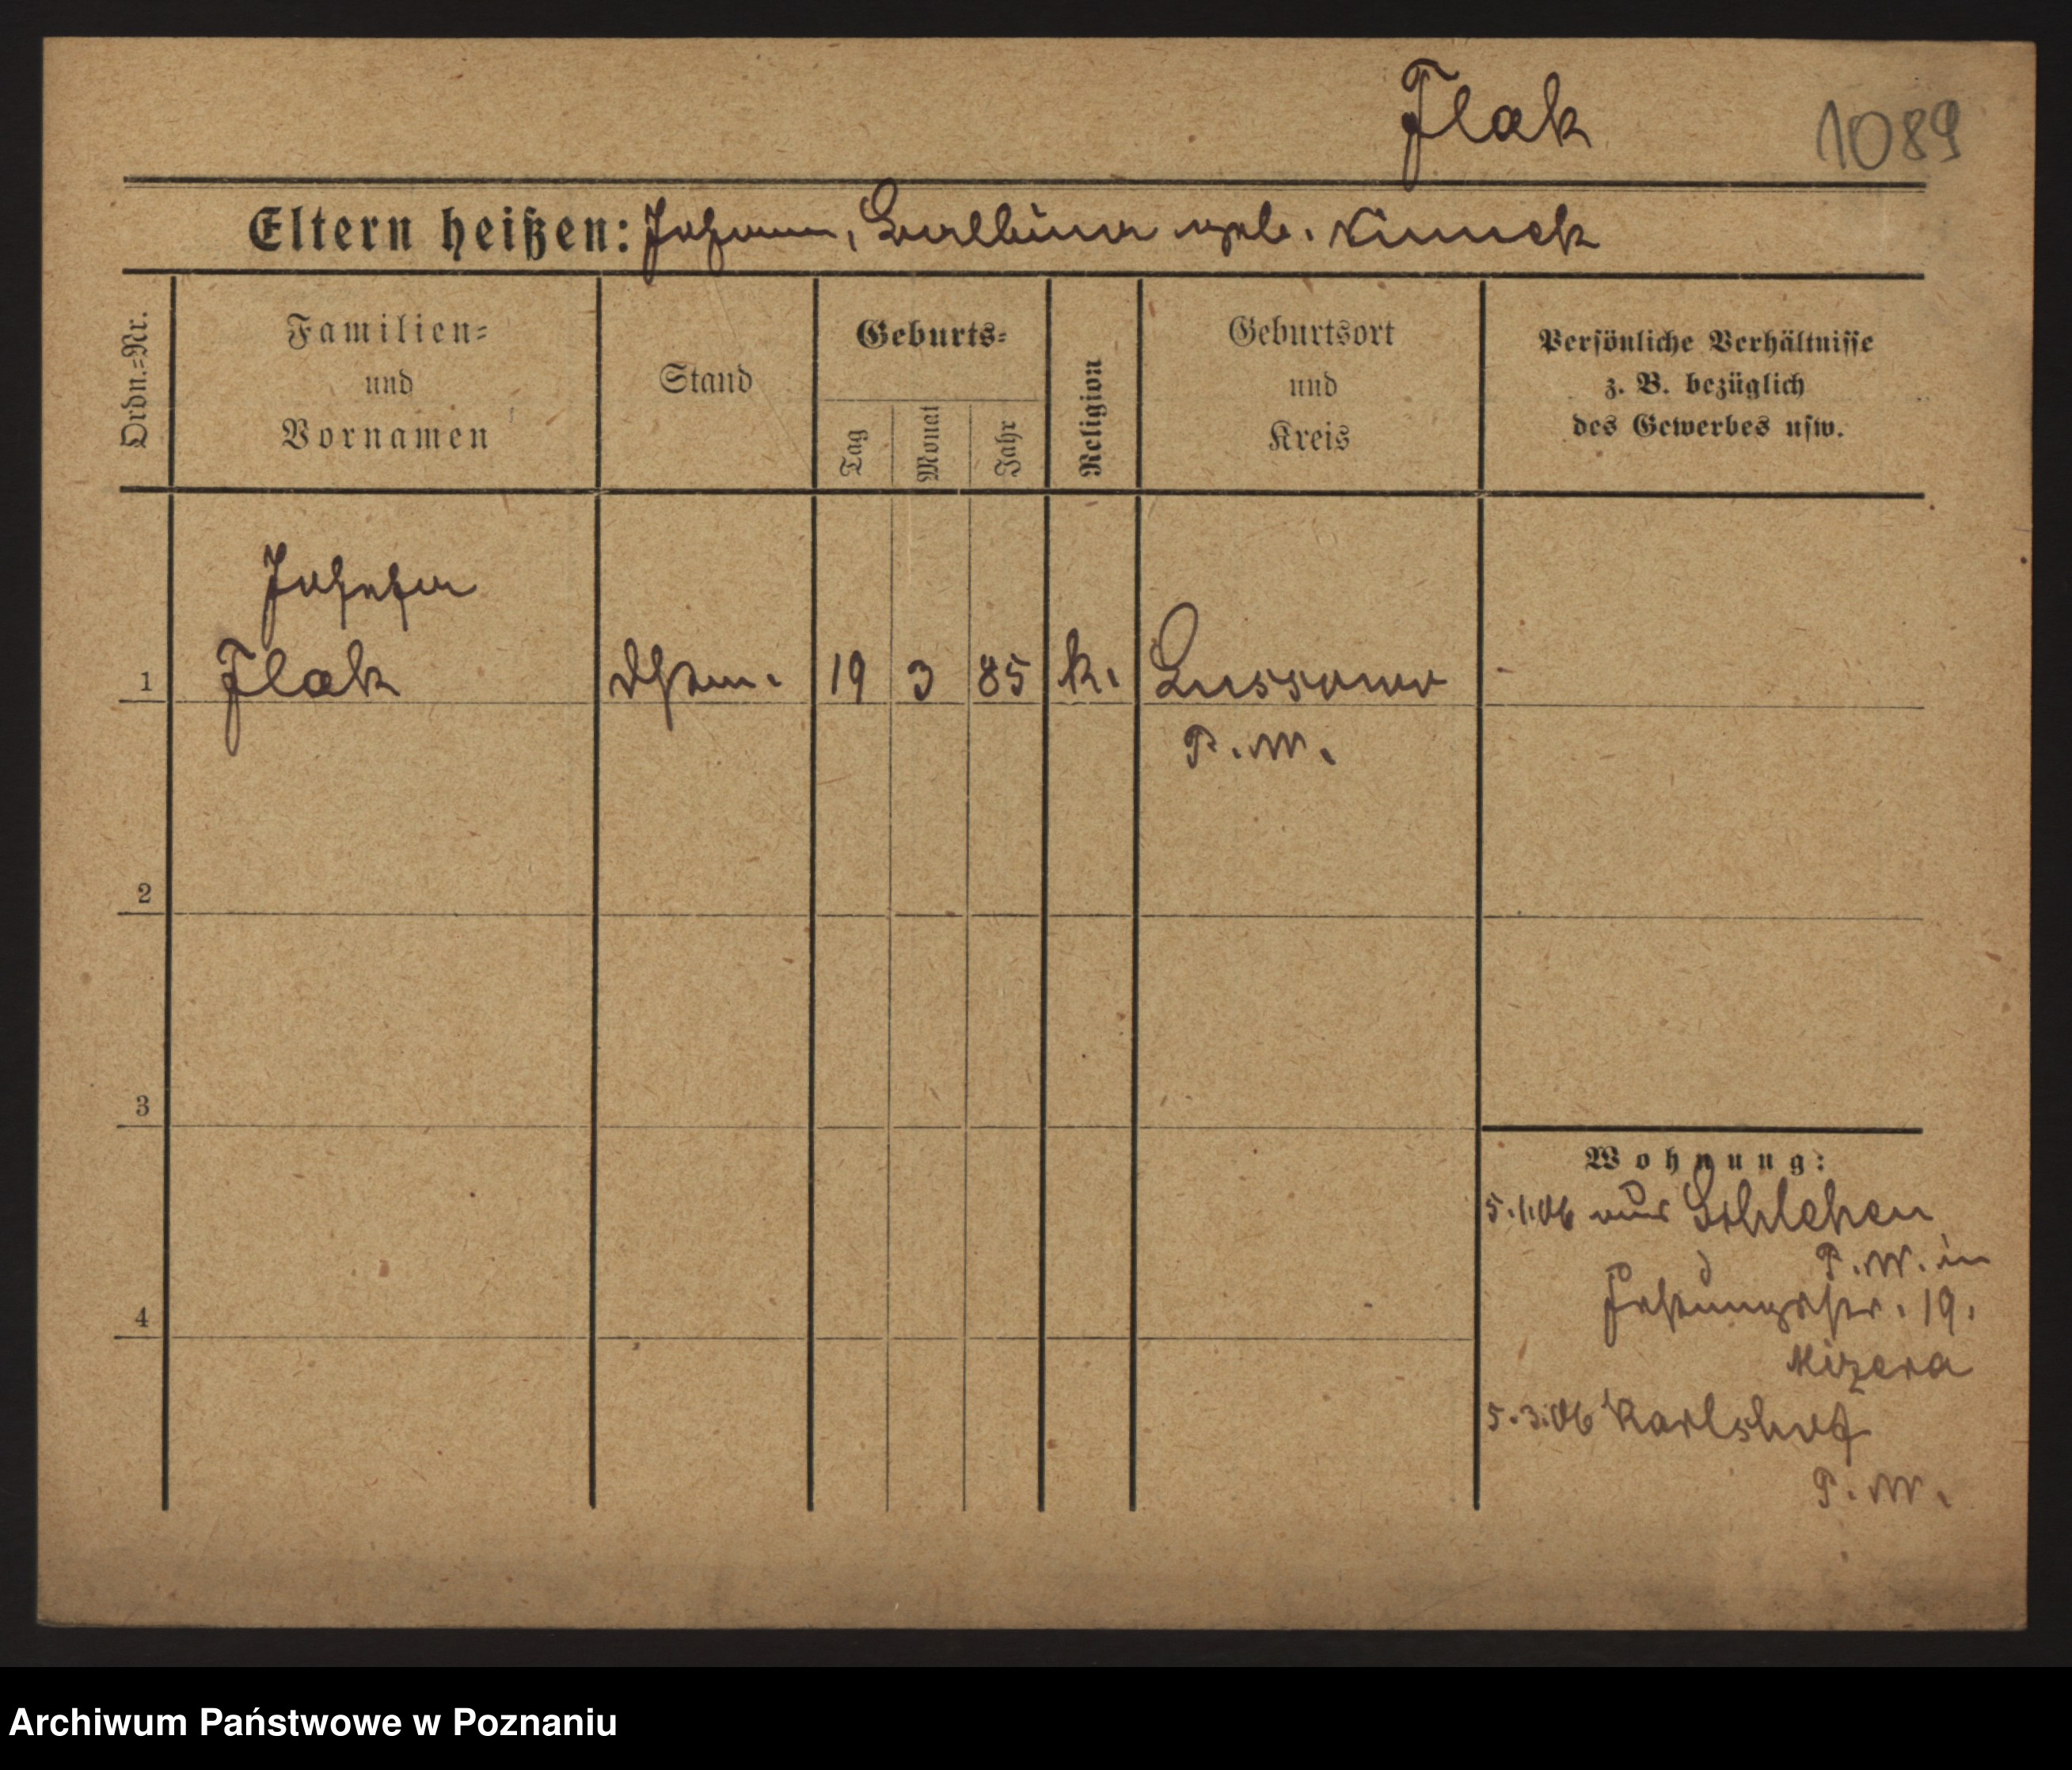 Flak
1089
Eltern heißen: Johann, Balbina geb. Nimmek
Ordn.-Nr.
Familien-
und
Vornamen
Stand
Geburts-
Tag
Monat
Jahr
Religion
Geburtsort
und
Kreis
Persönliche Verhältnisse
z. B. bezüglich
des Gewerbes usw.
Josefa
1 Flak 19 3 85 k. Lussowo
P. W.
2
3
4
Wohnung:
5.1.06 aus Schlehen
P. W. in
Festungsstr. 19.
Mizera
5.3.06 Karlshof
P. W.
Archiwum Państwowe w Poznaniu